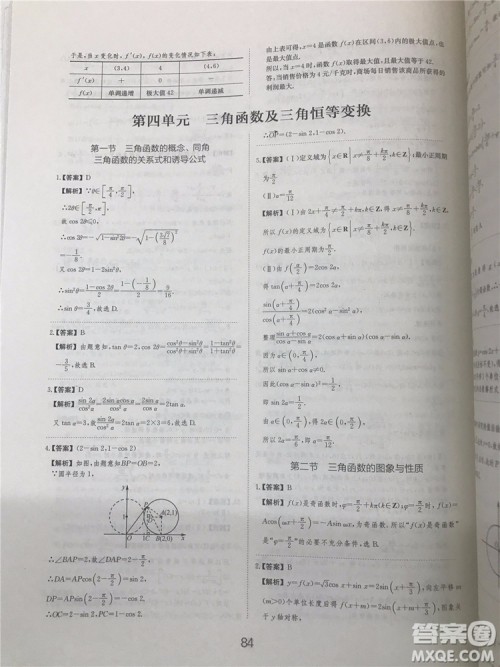 于是,当x变化时,f′(x),f(x)的变化情况如下表:
x (3,4) 4 (4,6)
f′(x) + 0 −
f(x) 单调递增 极大值42 单调递减
由上表可得,x=4是函数f(x)在区间(3,6)内的极大值点,也
是最大值点.
所以,当x=4时,函数f(x)取得最大值,且最大值等于42.
答:当销售价格为4元/千克时,商场每日销售该商品所获得
的利润最大.
第四单元 三角函数及三角恒等变换
第一节 三角函数的概念、同角
三角函数的关系式和诱导公式
1.【答案】D
【解析】∵θ∈[π/4,π/2],
∴2θ∈[π/2,π],
故cos2θ≤0,
∴cos2θ=−√(1−sin²2θ)=−√(1−(3√7/8)²)
=−1/8.
又cos2θ=1−2sin²θ,
∴sin²θ=(1−cos2θ)/2=(1−(−1/8))/2=9/16,
∴sinθ=3/4,故选D.
2.【答案】B
【解析】由题意知,tanθ=2,cos2θ=(cos²θ−sin²θ)/(cos²θ+sin²θ)=(1−tan²θ)/(1+tan²θ)=
−3/5,故选B.
3.【答案】D
【解析】sin2α/cos²α=2sinαcosα/cos²α=2tanα,
又tanα=3,∴sin2α/cos²α=6,故选D.
4.【答案】(2−sin2,1−cos2)
【解析】如图,由题意知BP=OB=2.
∵圆半径为1,
∴∠BAP=2,故∠DAP=2−π/2,
∴DA=APcos(2−π/2)=sin2,
DP=APsin(2−π/2)=−cos2.
∴OC=2−sin2,PC=1−cos2.
∴OP=(2−sin2,1−cos2).
5.【答案】(Ⅰ)定义域为{x∈R|x≠π/8+kπ/2,k∈Z},最小正周期
为π/2
(Ⅱ)α=π/12
【解析】(Ⅰ)由2x+π/4≠π/2+kπ,k∈Z,得x≠π/8+kπ/2,k∈Z,
所以f(x)的定义域为{x∈R|x≠π/8+kπ/2,k∈Z}.
f(x)的最小正周期为π/2.
(Ⅱ)由f(α/2)=2cos2α,
得tan(α+π/4)=2cos2α,
sin(α+π/4)/cos(α+π/4)=2(cos²α−sin²α),
整理得(sinα+cosα)/(cosα−sinα)=2(cosα+sinα)(cosα−sinα).
因为α∈(0,π/4),所以sinα+cosα≠0,
因此(cosα−sinα)²=1/2,即sin2α=1/2.
由α∈(0,π/4),得2α∈(0,π/2),
所以2α=π/6,即α=π/12.
第二节 三角函数的图象与性质
1.【答案】B
【解析】f(x)是奇函数时,φ=π/2+kπ(k∈Z);φ=π/2时,f(x)=
Acos(ωx+π/2)=−Asinωx,为奇函数.所以“f(x)是奇函数”
是“φ=π/2”的必要不充分条件,选B.
2.【答案】B
【解析】y=f(x)=√3cosx+sinx=2sin(x+π/3),左移m(m
>0)个单位长度后得f(x+m)=2sin(x+m+π/3),图象关
于y轴对称,
84
答案圈
MXQE.COM